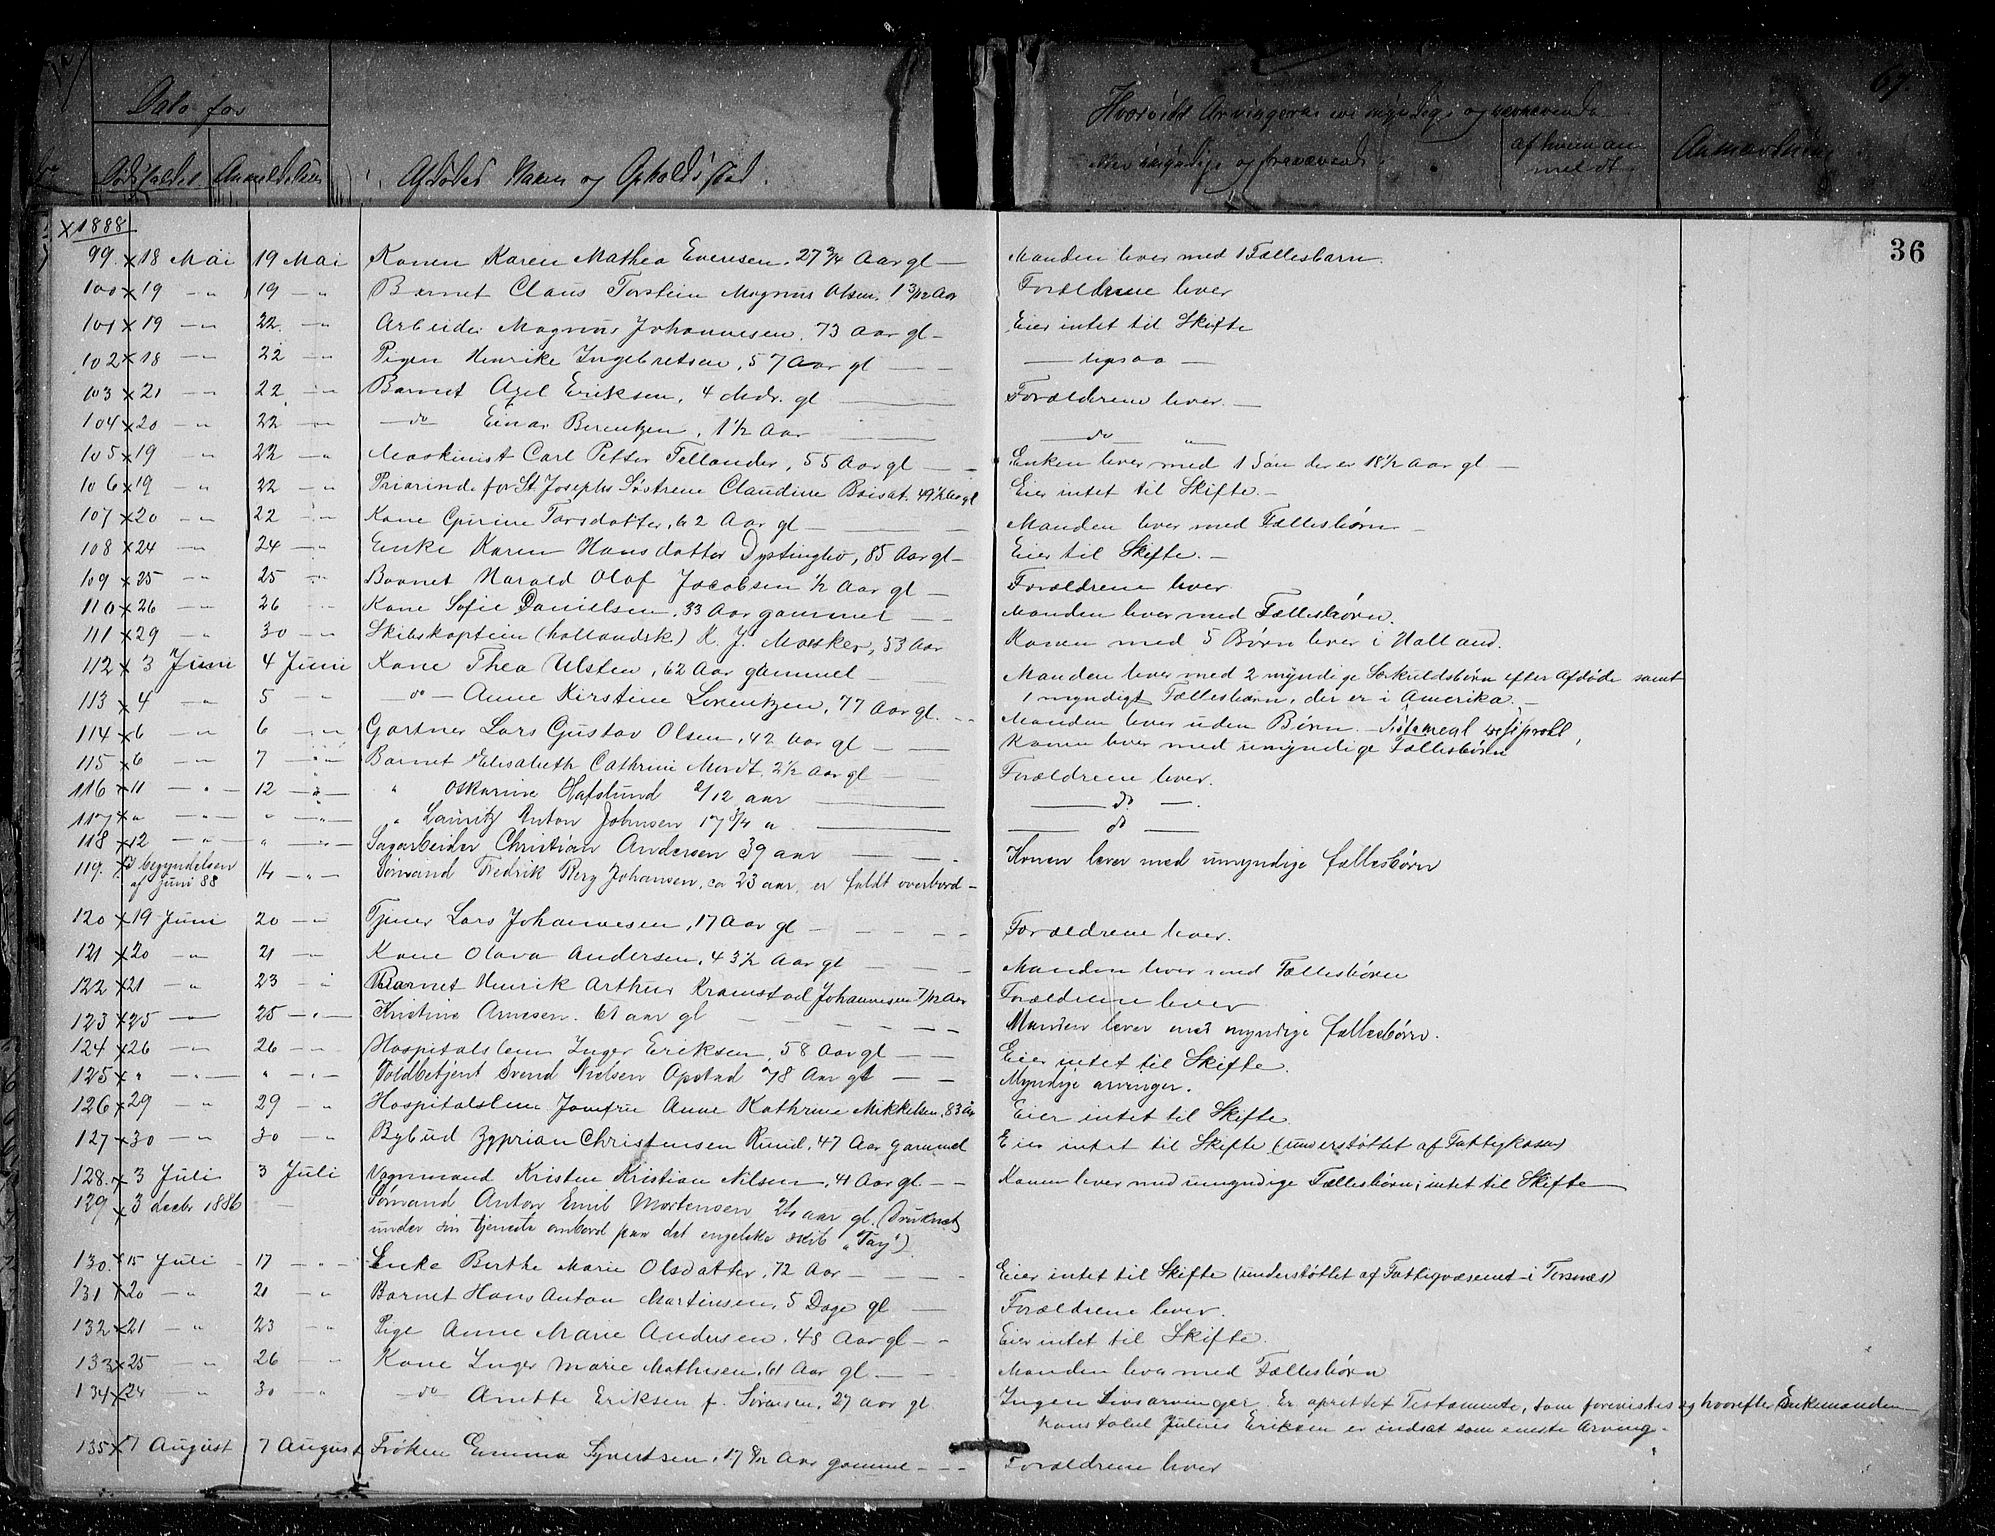 Dato for
Dødsfaldet Anmeldelsen
Afdødes Navn og Opholdssted.
Hvorvidt Arvingerne ere myndige og nærværende
eller umyndige og fraværende.
af hvem anmeldt
Anmærkning
67.
36
1888
99. x 18 Mai 19 Mai Konen Karen Mathea Evensen. 27 3/4 Aar gl — Manden lever med 1 Fællesbarn.
100 x 19 — " 19 — " Barnet Claus Torstein Magnus Olsen. 1 3/12 Aar Forældrene lever
101 x 19 — " 22 — " Arbeider Magnus Johannesen. 73 Aar gl — Eier intet til Skifte
102 x 18 — " 22 — " Pigen Henrike Ingebretsen, 57 Aar gl — — ligesaa —
103 x 21 — " 22 — " Barnet Axel Eriksen, 4 Mdr. gl — Forældrene lever. —
104 x 20 — " 22 — " — do Einar Berentzen, 1 1/2 Aar — — do — "
105 x 19 — " 22 — " Maskinist Carl Petter Tellander, 55 Aar gl — Enken lever med 1 Søn der er 18 1/2 Aar gl —
106 x 19 — " 22 — " Priorinde for St Josephs Søstrene Claudine Boisat. 49 1/2 Aar gl Eier intet til Skifte. —
107 x 20 — " 22 — " Kone Gurine Torsdatter, 62 Aar gl — Manden lever med Fællesbørn —
108 x 24 — " 24 — " Enke Karen Hansdatter Dystingbo, 85 Aar gl — Eier til Skifte. —
109 x 25 — " 25 — " Barnet Harald Olaf Jacobsen 1/2 Aar gl — Forældrene lever
110 x 26 — " 26 — " Kone Sofie Danielsen, 33 Aar gammel — Manden lever med Fællesbørn.
111 x 29 — " 30 — " Skibskaptein (hollandsk) K. J. Moesker, 53 Aar Konen med 5 Børn lever i Holland.
112 x 3 Juni 4 Juni Kone Thea Ulsten, 62 Aar gammel — Manden lever med 2 myndige Særkuldsbørn efter Afdøde samt
1 myndigt Fællesbarn, der er i Amerika. —
113 x 4 — " 5 — " — do — Anne Kirstine Lorentzen, 77 Aar gl. — Manden lever uden Børn. —
114 x 6 — " 6 — " Gartner Lars Gustav Olsen, 42 Aar gl — Konen lever med umyndige Fællesbørn
115 x 6 — " 7 — " Barnet Elisabeth Cathrine Mordt, 2 1/2 Aar gl — Forældrene lever.
116 x 11 — " — 12 — " — " Oskarine Hafslund 2/12 aar — — do —.
117 x " — " — " — " — " Lauritz Anton Johnsen 17 3/4 " — — do —
118 x 12 — " — " — " — Sagarbeider Christian Andersen 39 aar — Konen lever med umyndige fællesbørn
119. x I begyndelsen af Juni 88 14 — " — Sømand Fredrik Berg Johansen, ca 23 aar, er faldt overbord —
120 x 19 Juni 20 — " Tjener Lars Johannesen, 17 Aar gl — Forældrene lever.
121 x 20 — " 21 — " Kone Olava Andersen, 43 1/2 Aar gl — Manden lever med Fællesbørn
122 x 21 — " 23 — " Barnet Henrik Arthur Kramstad Johannesen 7/12 Aar Forældrene lever
123 x 25 — " — 25 — " — Kristine Arnesen. 61 aar gl — Manden lever med myndige fællesbørn.
124 x 26 — " 26 — " Hospitalslem Inger Eriksen, 58 Aar gl — Eier intet til Skifte.
125 x " — " — " — " — Toldbetjent Svend Nielsen Opstad 78 Aar gl — Myndige arvinger.
126 x 29 — " 29 — " Hospitalslem Jomfru Anne Kathrine Mikkelsen, 83 Aar Eier intet til Skifte.
127 x 30 — " 30 — " Bybud Zyprian Christensen Rund, 47 Aar gammel Eier intet til Skifte (understøttet af Fattigkassen)
128. x 3 Juli 3 Juli Vognmand Kristen Kristian Nilsen, 41 Aar gl — Konen lever med umyndige Fællesbørn; intet til Skifte
129 x 3 Decbr 1886 — Sømand Anton Emil Mortensen 24 aar gl. (Druknet
under sin tjeneste ombord paa det engelske skib "Tay")
130. x 15 Juli 17 — " — Enke Berthe Marie Olsdatter, 72 Aar — Eier intet til Skifte (understøttet af Fattigvæsenet i Torsnæs)
131 x 20 — " 21 — " Barnet Hans Anton Martinsen, 5 Dage gl — Forældrene lever.
132 x 21 — " 23 — " Pige Anne Marie Andersen, 48 Aar gl — Eier intet til Skifte.
133 x 25 — " 26 — " Kone Inger Marie Mathisen, 61 Aar gl — Manden lever med Fællesbørn
134 x 24 — " 30 — " — do — Anette Eriksen f. Sørensen, 27 aar gl Ingen Livsarvinger. Er oprettet Testamente, som forevistes og hvorefter Enkemanden
Konstabel Julius Eriksen er indsat som eneste Arving. —
135 x 7 August 7 August Frøken Emma Syvertsen, 17 8/12 Aar gammel — Forældrene lever